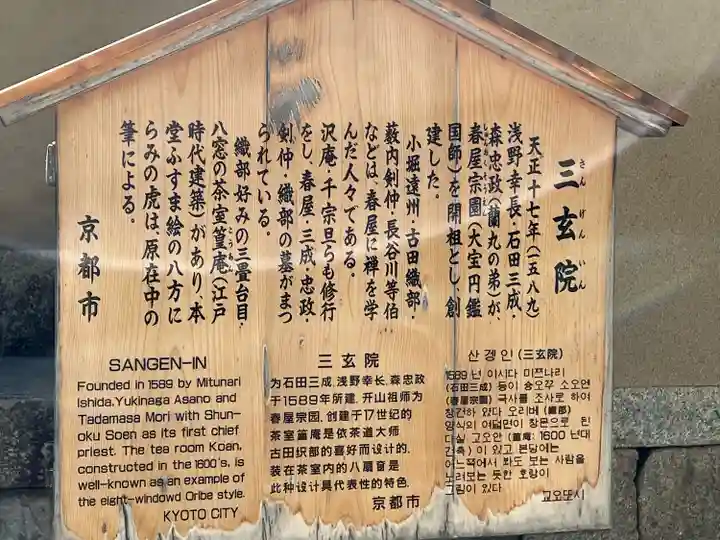 三玄院
さんげんいん
天正十七年（一五八九）
浅野幸長・石田三成・
森忠政（蘭丸の弟）が、
春屋宗園（大宝円鑑
国師）を開祖とし、創
建した。
小堀遠州・古田織部・
薮内剣仲・長谷川等伯
などは、春屋に禅を学
んだ人々である。
沢庵・千宗旦らも修行
をし、春屋・三成・忠政・
剣仲・織部の墓がまつ
られている。
織部好みの三畳台目・
八窓の茶室篁庵（江戸
こうあん
時代建築）があり、本
堂ふすま絵の八方に
らみの虎は、原在中の
筆による。
京都市
SANGEN-IN
Founded in 1589 by Mitunari
Ishida,Yukinaga Asano and
Tadamasa Mori with Shun-
oku Soen as its first chief
priest. The tea room Koan,
constructed in the 1600's, is
well-known as an example of
the eight-windowd Oribe style.
KYOTO CITY
三玄院
为石田三成、浅野幸长、森忠政
于1589年所建．开山祖师为
春屋宗园．创建于17世纪的
茶室篁庵是依茶道大师
古田织部的喜好而设计的．
装在茶室内的八扇窗是
此种设计具代表性的特色．
京都市
산겡인（三玄院）
1589 년 이시다 미쯔나리
（石田三成）등이 슝오꾸 소오엔
（春屋宗園）국사를 조사로 하여
창건하 였다 오리베（織部）
양식의 여덟면이 창문으로 된
다실 고오안（篁庵：1600 년대
건축）이 있고 본당에는
어느쪽에서 봐도 보는 사람을
노려보는 듯한 호랑이
그림이 있다
교오또시